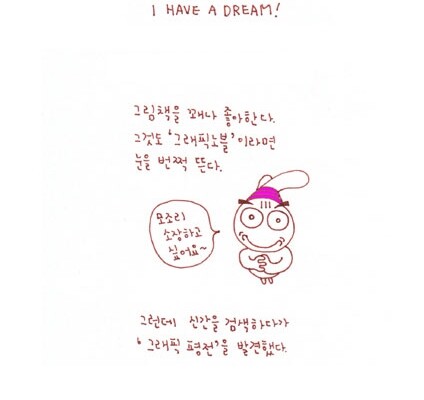 I HAVE A DREAM!
그림책을 꽤나 좋아한다.
그것도 '그래픽노블'이라면
눈을 번쩍 뜬다.
모조리
소장하고
싶어요~
그런데 신간을 검색하다가
'그래픽 평전'을 발견했다.